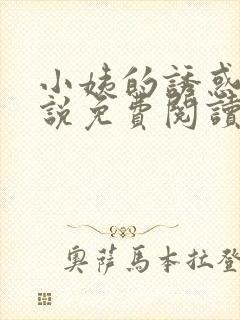 小姨的誘惑
說免費閱讀
奧薩馬本拉登